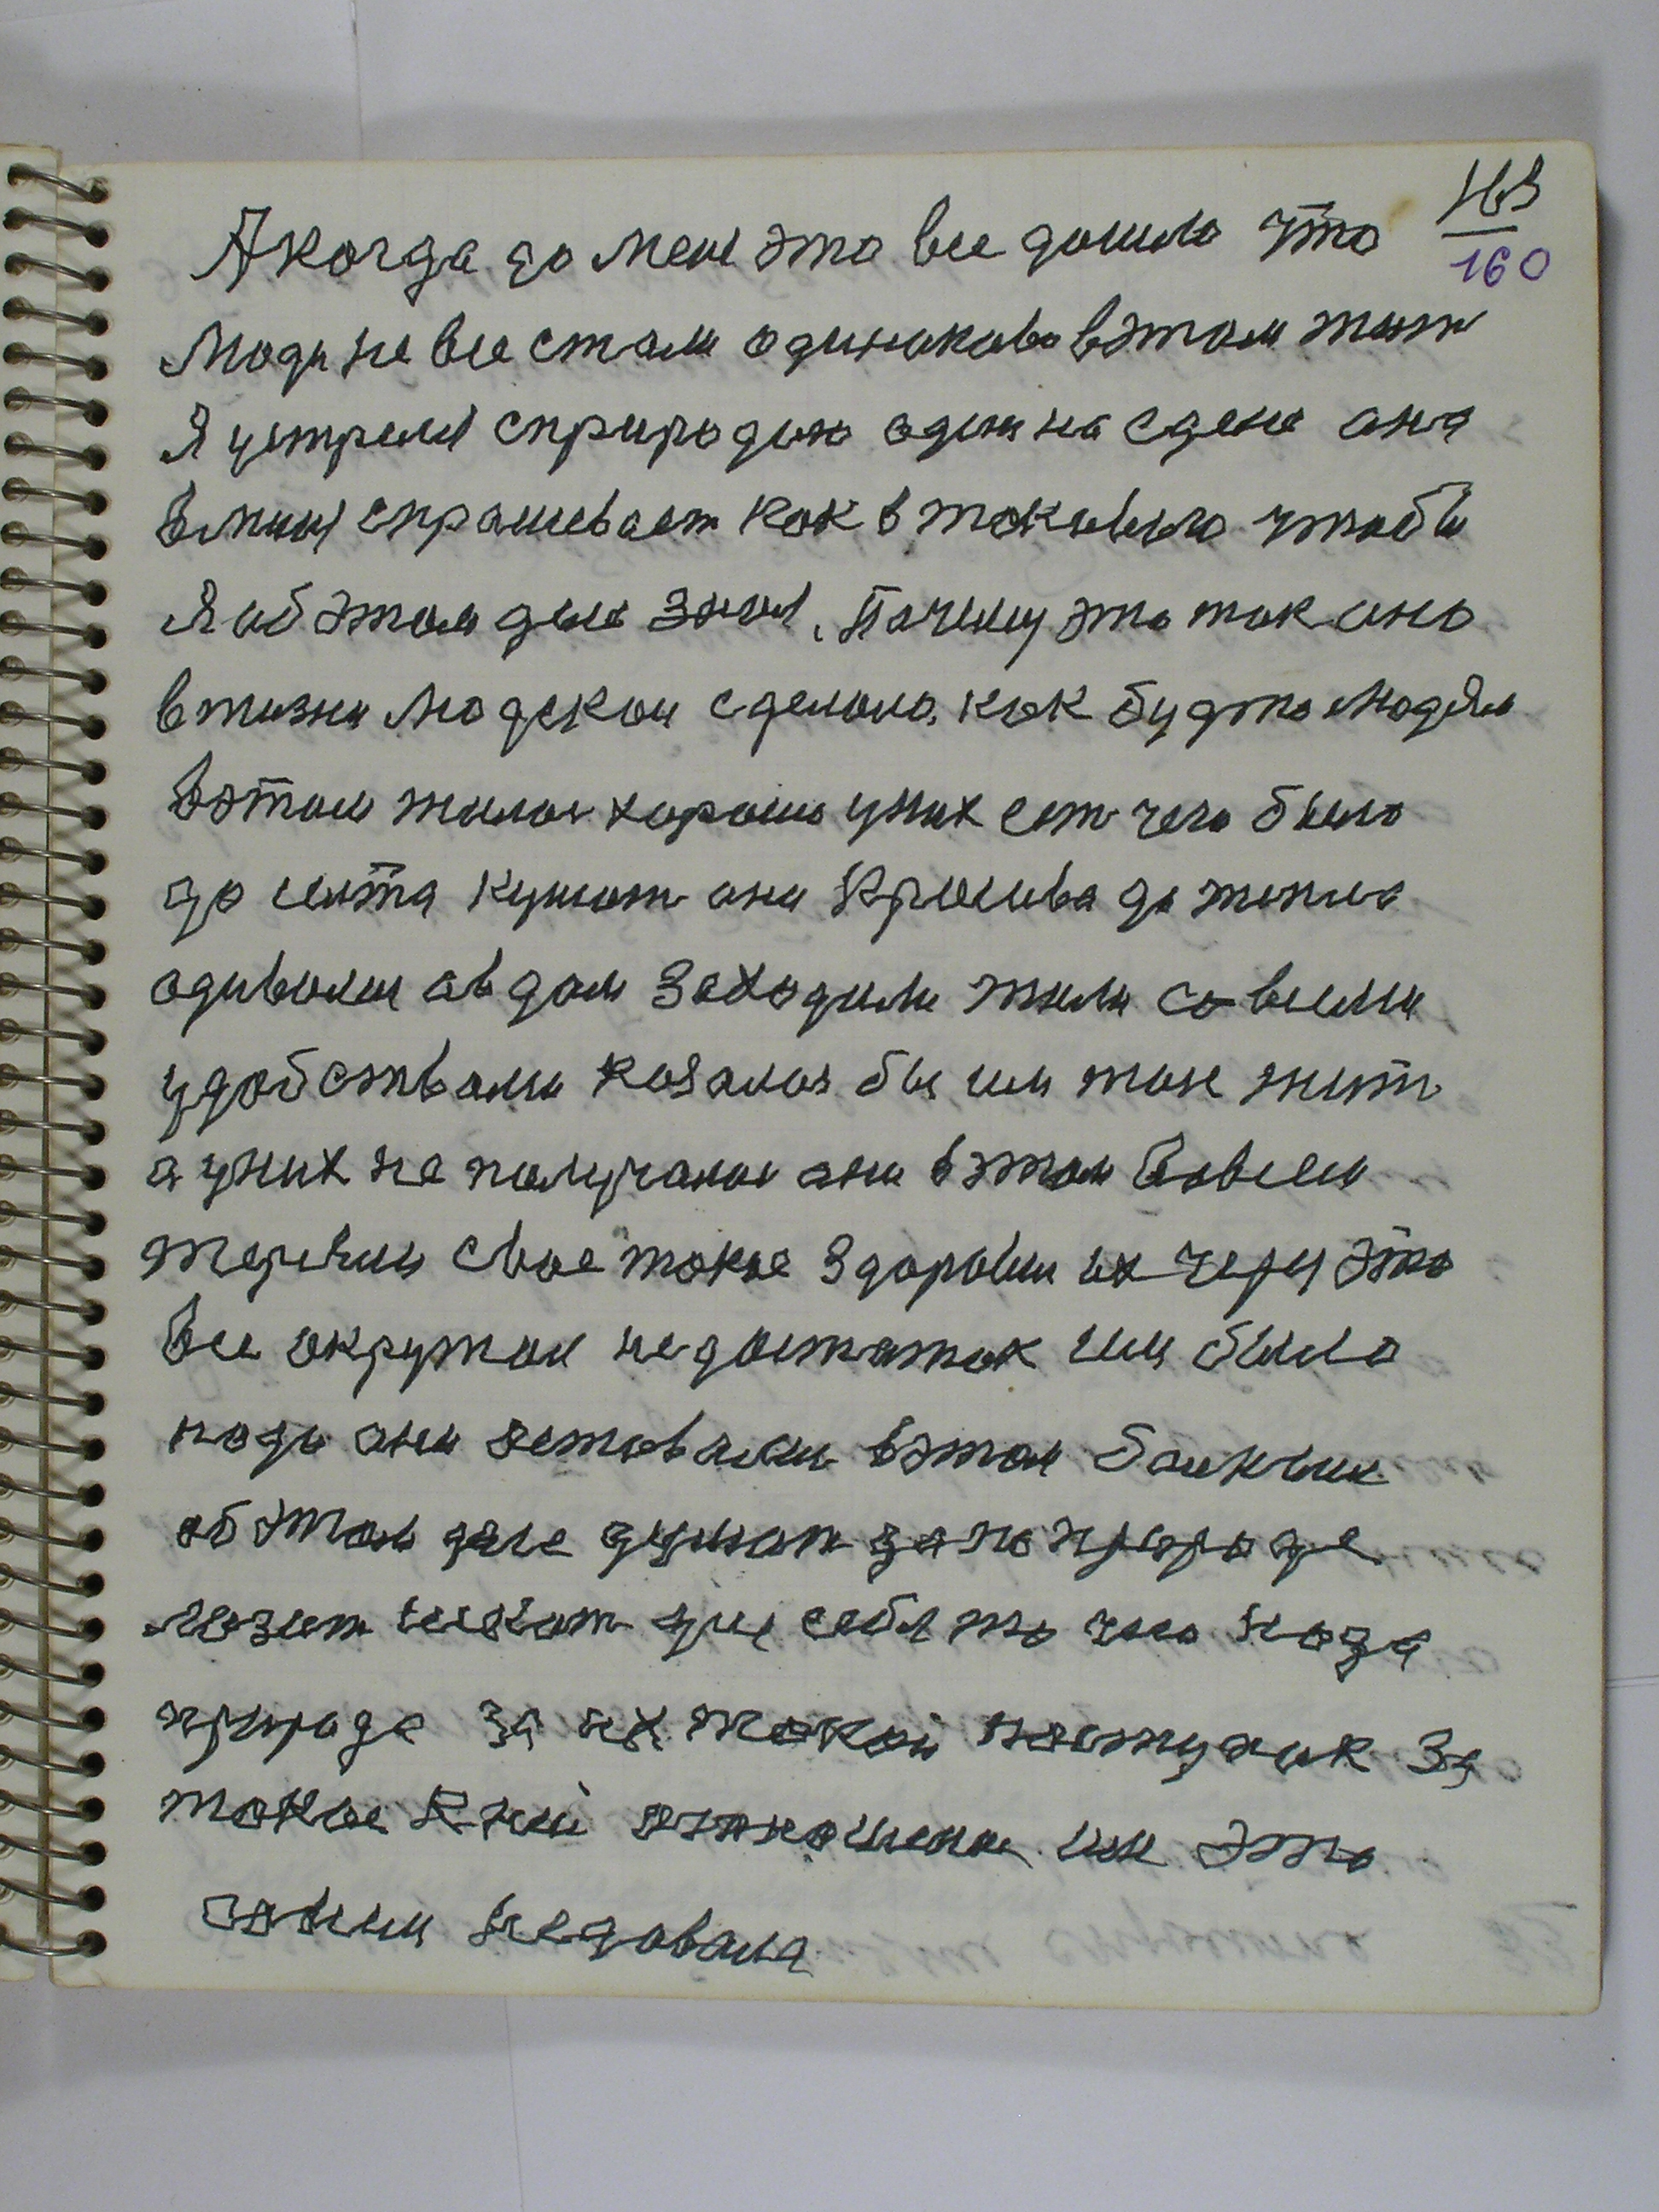 163
160
А когда до мене это все дошло что
люди не все стали одинаково в этом жить
Я устрелся с природою один на один она
в мине спрашевает как в таковыго чтобы
Я об этом деле знал. Почему это так оно
в жизни людской сделоно, как будто людям
в этом жилос хорошо у них есть чего было
до сыта кушать они красива до тепла
одивалис а в дом заходили жили со всеми
удобствами казалос бы им там жить
а у них не получалос они в этом во всем
теряли свое такое здоровия их через это
все окружал недостаток им было
надо они оставалис в этом
об этом деле думать да по природе
лазить искать для себя то чего надо
природа за их такой поступок за
такое к ней отношение им это
совсем не давала